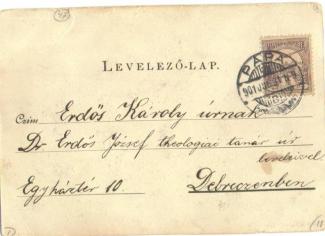 LEVELEZŐ-LAP.
PÁPA
Czim Erdős Károly úrnak
Dr Erdős József theologiai tanár úr
leveleivel
Egyháztér 10
Debreczenben